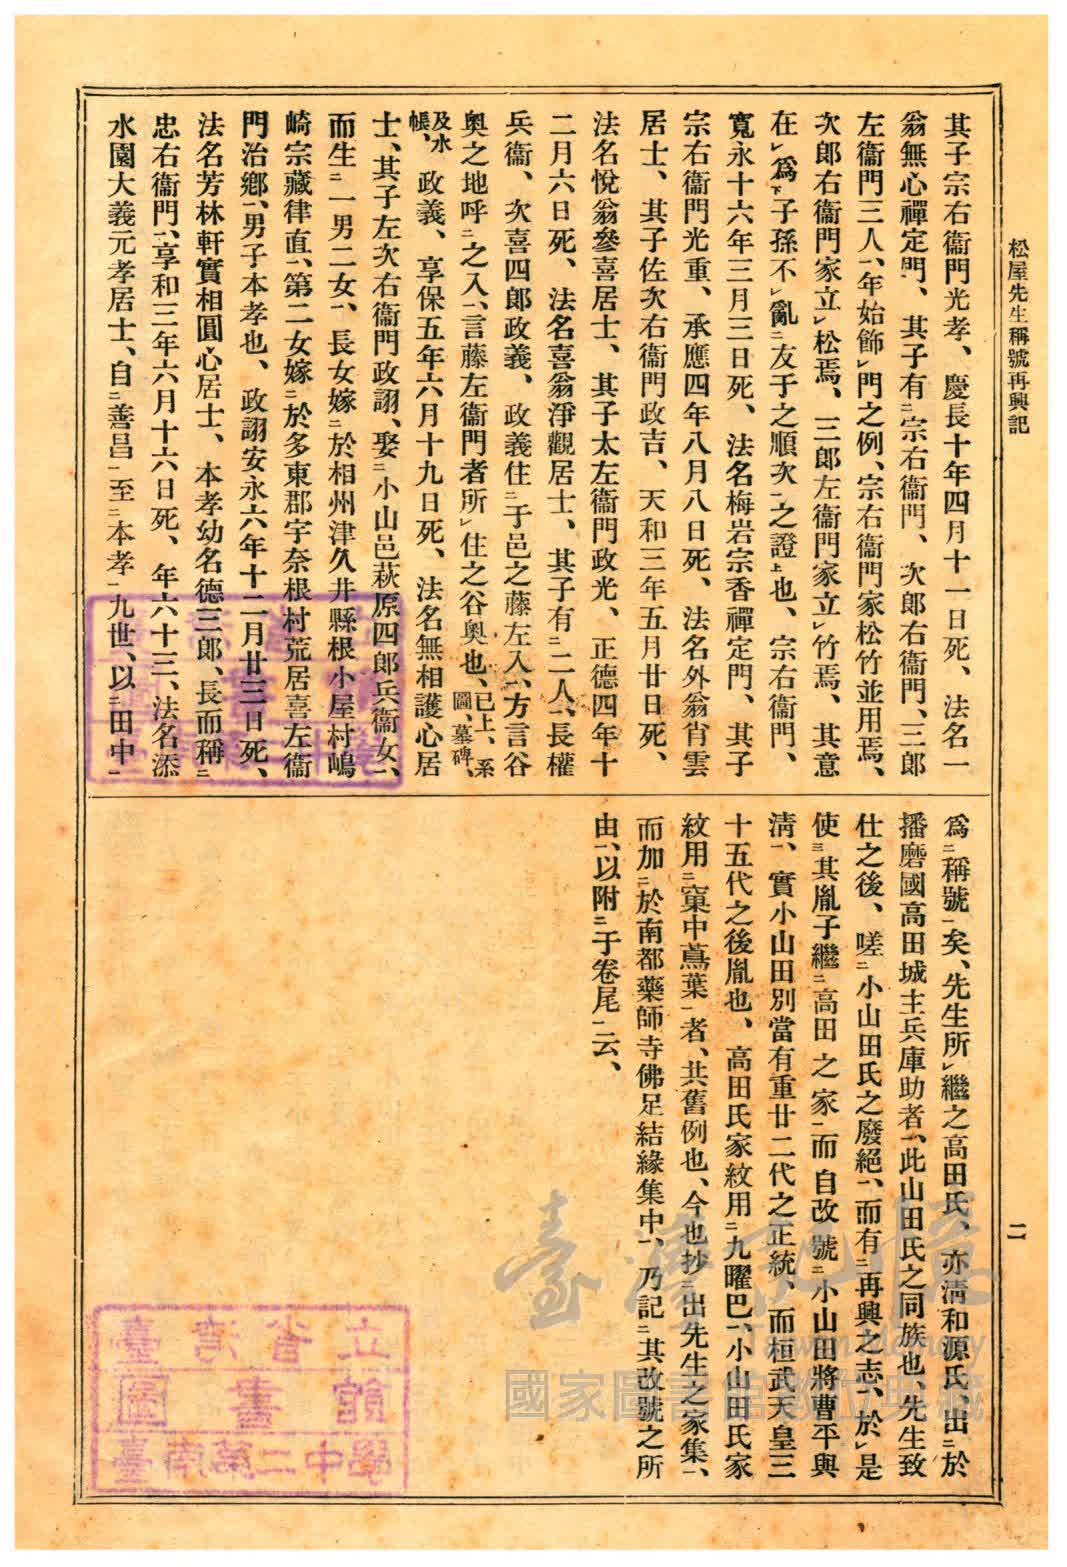 松屋先生稱號再興記
二
其子宗右衞門光孝、慶長十年四月十一日死、法名一
翁無心禪定門、其子有㆓宗右衞門、次郎右衞門、三郎
左衞門三人㆒、年始飾㆑門之例、宗右衞門家松竹並用焉、
次郎右衞門家立㆑松焉、三郎左衞門家立㆑竹焉、其意
在㆘爲㆓子孫不㆑亂㆓友于之順次㆒之證㆖也、宗右衞門、
寬永十六年三月三日死、法名梅岩宗香禪定門、其子
宗右衞門光重、承應四年八月八日死、法名外翁肖雲
居士、其子佐次右衞門政吉、天和三年五月廿日死、
法名悅翁參喜居士、其子太左衞門政光、正德四年十
二月六日死、法名喜翁淨觀居士、其子有㆓二人㆒、長權
兵衞、次喜四郎政義、政義住㆓于邑之藤左入㆒、方言谷
奧之地呼㆓之入㆒、言藤左衞門者所㆑住之谷奧也、已上、系圖、墓碑、
及水帳、政義、享保五年六月十九日死、法名無相護心居
士、其子左次右衞門政詡、娶㆓小山邑萩原四郎兵衞女㆒、
而生㆓一男二女㆒、長女嫁㆓於相州津久井縣根小屋村嶋
崎宗藏律直㆒、第二女嫁㆓於多東郡宇奈根村荒居喜左衞
門治鄕㆒、男子本孝也、政詡安永六年十二月廿三日死、
法名芳林軒實相圓心居士、本孝幼名德三郎、長而稱㆓
忠右衞門㆒、享和三年六月十六日死、年六十三、法名添
水園大義元孝居士、自㆓善昌㆒至㆓本孝㆒九世、以㆓田中㆒
爲㆓稱號㆒矣、先生所㆑繼之高田氏、亦淸和源氏、出㆓於
播磨國高田城主兵庫助者㆒、此山田氏之同族也、先生致
仕之後、嗟㆓小山田氏之廢絕㆒、而有㆓再興之志㆒、於㆑是
使㆔其胤子繼㆓高田之家㆒而自改號㆓小山田將曹平與
淸㆒、實小山田別當有重廿二代之正統、而桓武天皇三
十五代之後胤也、高田氏家紋用㆓九曜巴㆒、小山田氏家
紋用㆓窠中蔦葉㆒者、共舊例也、今也抄㆓出先生之家集㆒、
而加㆓於南都藥師寺佛足結緣集中㆒、乃記㆓其改號之所
由㆒、以附㆓于卷尾㆒云、
臺灣記憶
Taiwan Memory
國家圖書館數位典藏
立省灣臺
館書圖
學中二第南臺